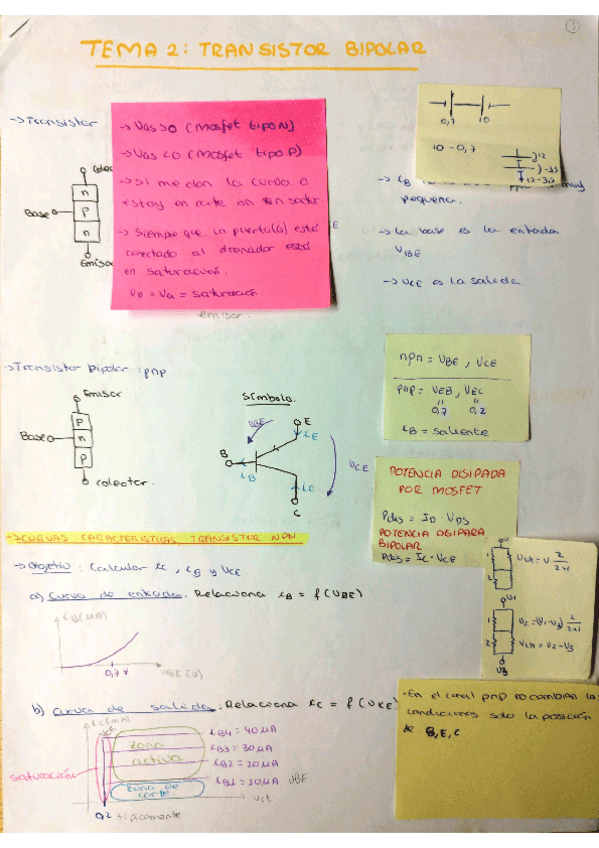 1
TEMA 2: TRANSISTOR BIPOLAR
→Transistor
n
P
n
Base
Emisor
→ VGS>0 (Mosfet tipo N)
→ VGS<0 (Mosfet tipo P)
→ Si me dan la curva o
estoy en corte o en satur
→ Siempre que la puerta(G) está
conectado al drenador está
en saturación.
VD = VG = saturación
emisor.
0,7
10
10-0,7
12
pequeña.
→ La base es la entrada
VBE
→ VCE es la salida
→Transistor Bipolar : pnp
Emisor
P
n
P
Base
Colector.
Símbolo.
VBE
E
iE
B
iB
VCE
iC
C
npn = VBE, VCE
pnp = VEB, VEC
0,7 0,2
iB = saliente
POTENCIA DISIPADA
POR MOSFET
Pdis = ID · VDS
POTENCIA DISIPADA
BIPOLAR
Pdis = IC · VCE
→CURVAS CARACTERÍSTICAS TRANSISTOR NPN
→ Objetivo : Calcular ic, iB y VCE
a) Curva de entrada. Relaciona iB = f(VBE)
iB(μA)
0,7 V
VBE (V)
b) Curva de salida : Relaciona ic = f(VCE)
ic(mA)
iB4 = 40μA
iB3 = 30μA
iB2 = 20μA
iB1 = 10μA VBE
zona
activa
zona de
corte
saturación
0,2 típicamente
V1
V3
· En el canal pnp no cambian las
condiciones solo la posición
de B, E, C